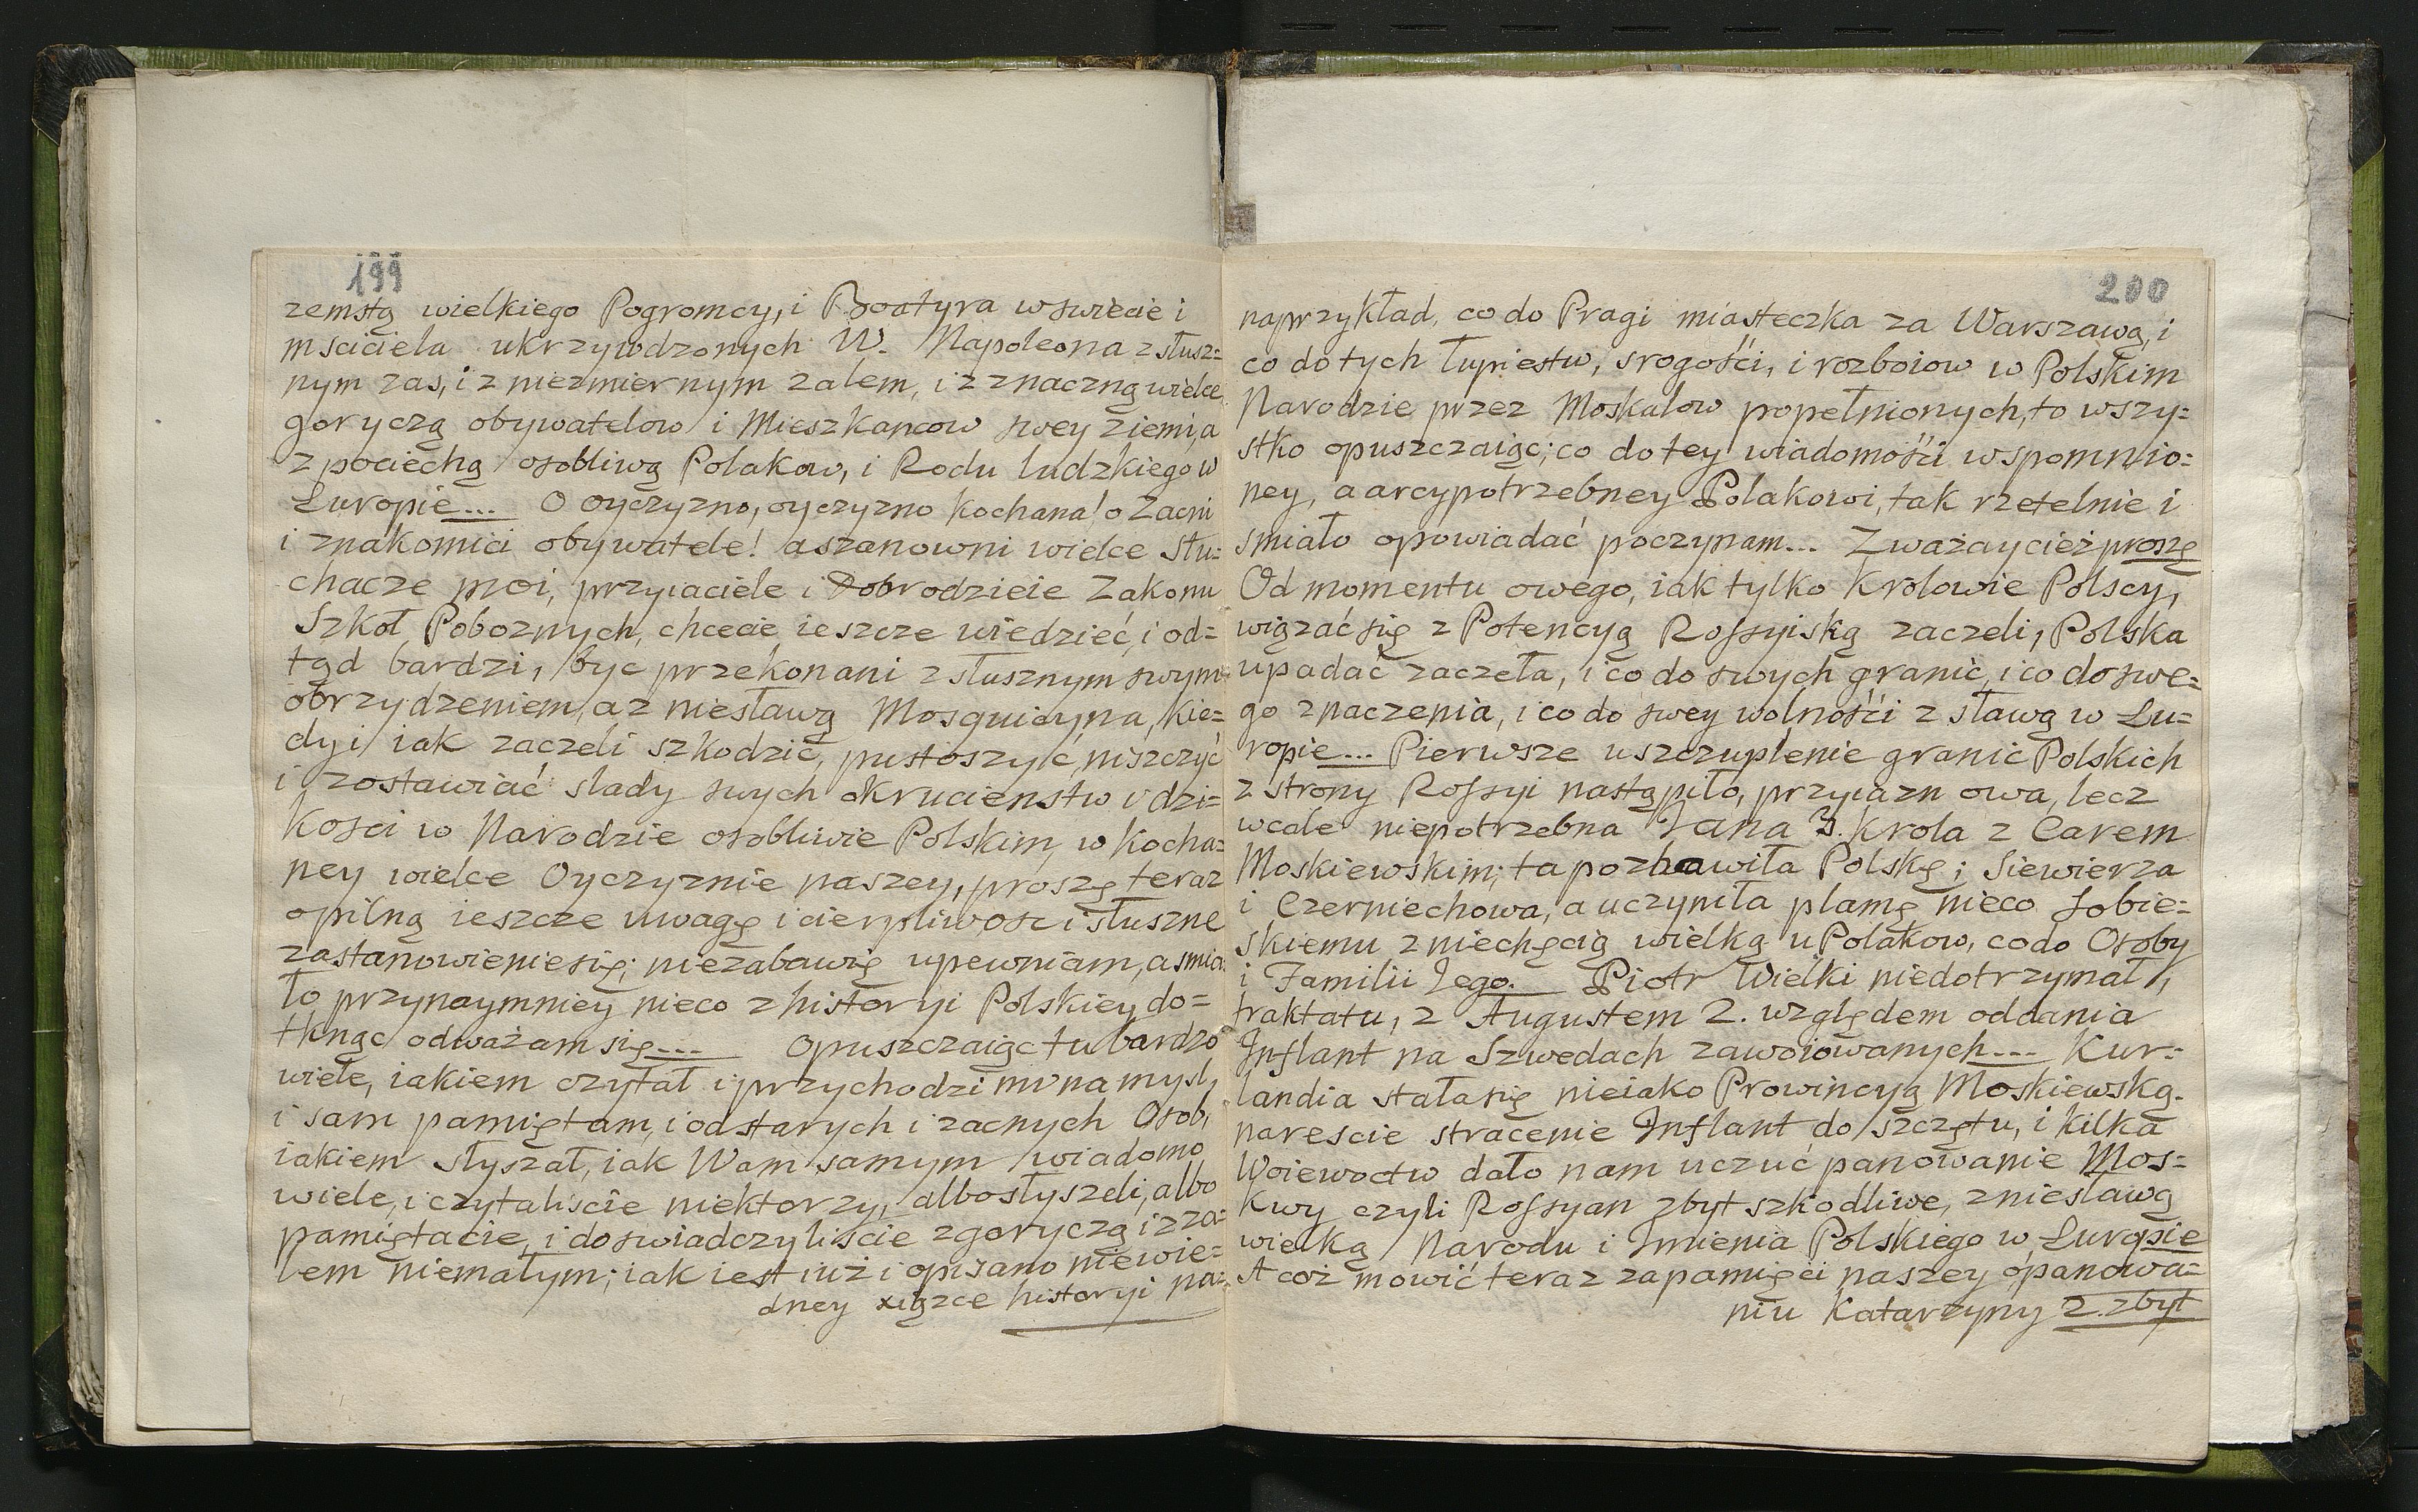 199
zemstą wielkiego Pogromcy, i Boatyra w swiecie i
msciciela ukrzywdzonych W. Napoleona z słusz=
nym zas, i z niezmiernym zalem, i z znaczną wielce
goryczą obywatelow i Mieszkancow swey ziemi, a
z pociechą osobliwą Polakow, i Rodu ludzkiego w
Europie... O Oyczyzno, oyczyzno kochana! o Zacni
i znakomici obywatele! a szanowni wielce Słu=
chacze moi, przyiaciele i Dobrodzieie Zakonu
Szkoł Poboznych, chcecie ieszcze wiedzieć, i od=
tąd bardzi, byc przekonani z słusznym swym
obrzydzeniem, a z niesławą Mosquicyna, kie=
dy i iak zaczeli szkodzić, pustoszyc, niszczyć
i zostawiać slady swych okrucienstw i dzi=
kosci w Narodzie osobliwie Polskim, w kocha=
ney wielce Oyczyznie naszey, proszę teraz
o pilną ieszcze uwagę i cierpliwosc i słuszne
zastanowienie się; niezabawię upewniam, a smia
ło przynaymniey nieco z historyi Polskiey do=
tknąc odważam się... Opuszczaiąc tu bardzo
wiele, iakiem czytał i przychodzi mi na mysl,
i sam pamiętam, i od starych i zacnych Osob,
iakiem słyszał, iak Wam samym wiadomo
wiele, i czytaliscie niektorzy, albo słyszeli, albo
pamiętacie, i doswiadczyliscie z goryczą i z za=
lem niemałym; iak iest iuż i opisano niewie=
dney xiązce historyi na=
200
naprzykład, co do Pragi miasteczka za Warszawą, i
co do tych łupiestw, srogości, i rozboiow w Polskim
Narodzie przez Moskalow popełnionych, to wszy=
stko opuszczaiąc; co do tey wiadomości wspomnio=
ney, a arcypotrzebney Polakowi, tak rzetelnie i
smiało opowiadać poczynam... Zważaycież proszę
Od momentu owego, iak tylko Krolowie Polscy,
wiązać się z Potencyą Rossyiską zaczeli, Polska
upadać zaczeła, i co do swych granic, i co do swe=
go znaczenia, i co do swey wolności z sławą w Eu=
ropie... Pierwsze uszczuplenie granic Polskich
z strony Rossyi nastąpiło, przyiazn owa, lecz
wcale niepotrzebna Jana 3. Krola z Carem
Moskiewskim; ta pozbawiła Polskę; Siewierza
i Czerniechowa, a uczyniła plamę nieco Sobie=
skiemu z niechęcią wielką u Polakow, co do Osoby
i Familii Jego. Piotr Wielki niedotrzymał,
traktatu, z Augustem 2. względem oddania
Inflant na Szwedach zawoiowanych... Kur=
landia stała się nieiako Prowincyą Moskiewską.
nareście stracenie Inflant do szczętu, i kilka
Woiewoctw dało nam uczuć panowanie Mos=
kwy czyli Rossyan zbyt szkodliwe, z niesławą
wielką Narodu i Imienia Polskiego w Europie
A coż mowić teraz za pamięci naszey, o panowa=
niu Katarzyny 2. zbyt